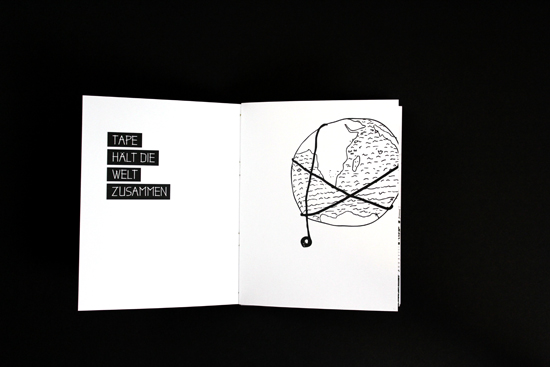 TAPE
HÄLT DIE
WELT
ZUSAMMEN